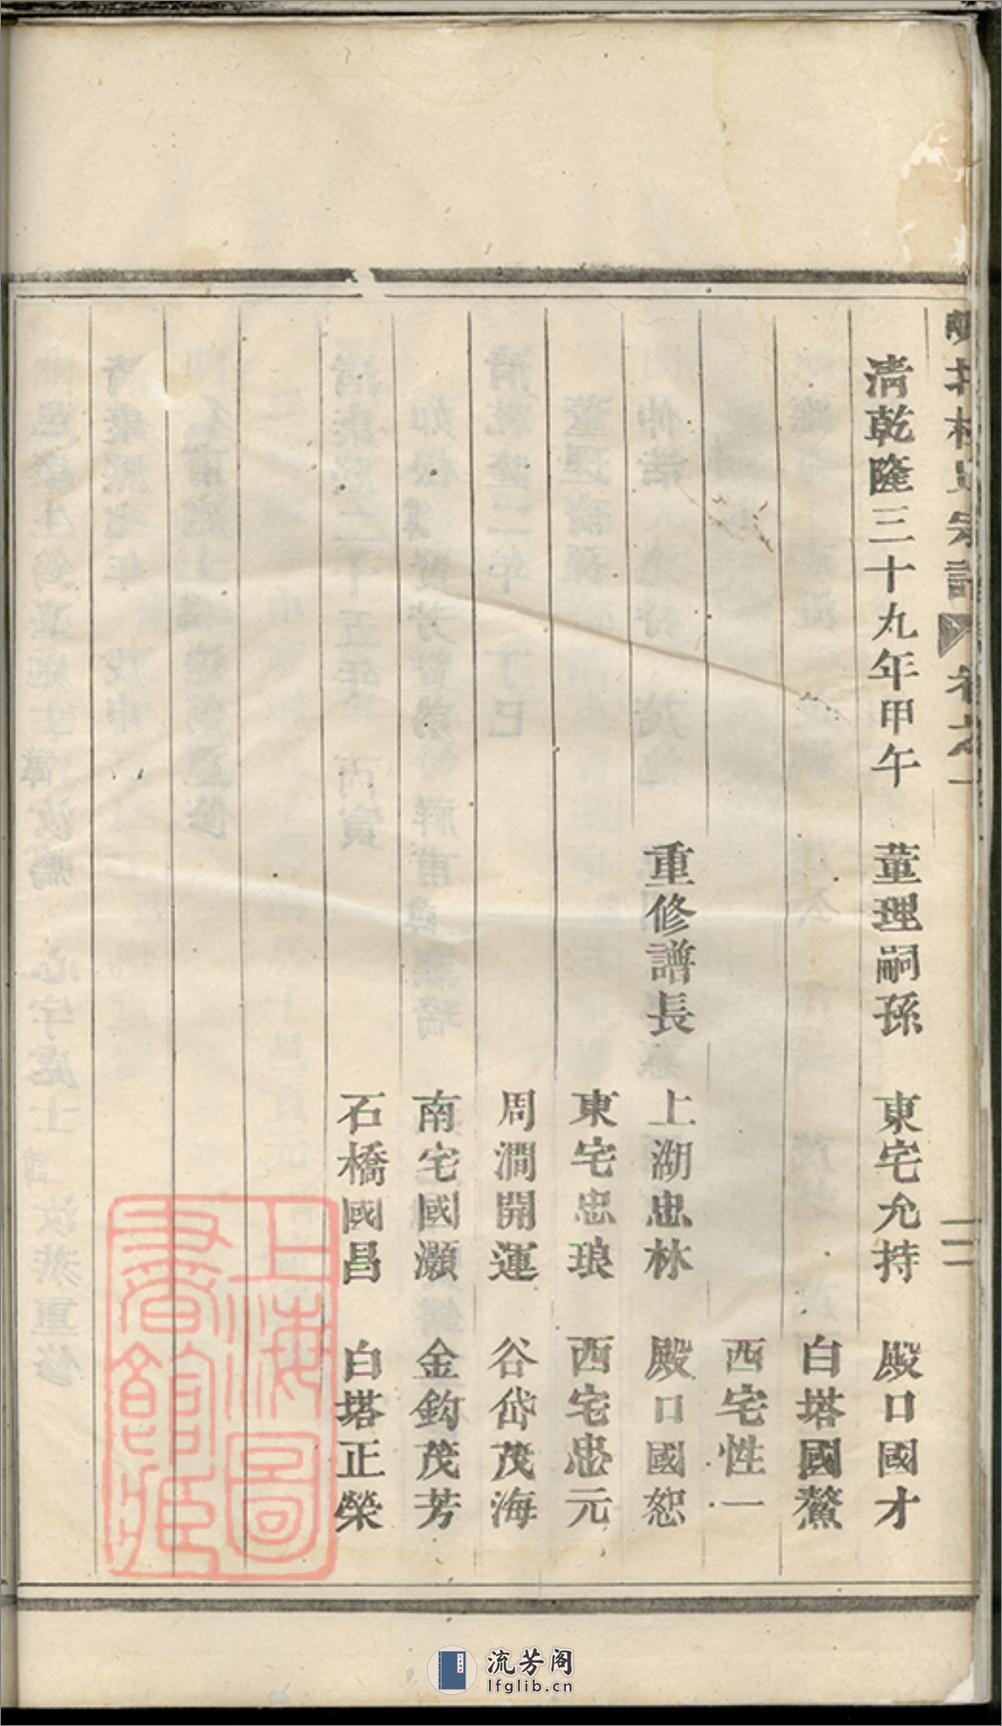 清乾隆三十九年甲午 董理嗣孫 東宅允持 殿口國才
白塔國鰲
西宅性一
重修譜長 上湖忠林 殿口國恕
東宅忠琅 西宅忠元
周澗開運 谷岱茂海
南宅國灝 金鈎茂芳
石橋國昌 白塔正榮
上海圖書館藏
流芳阁
lfglib.cn